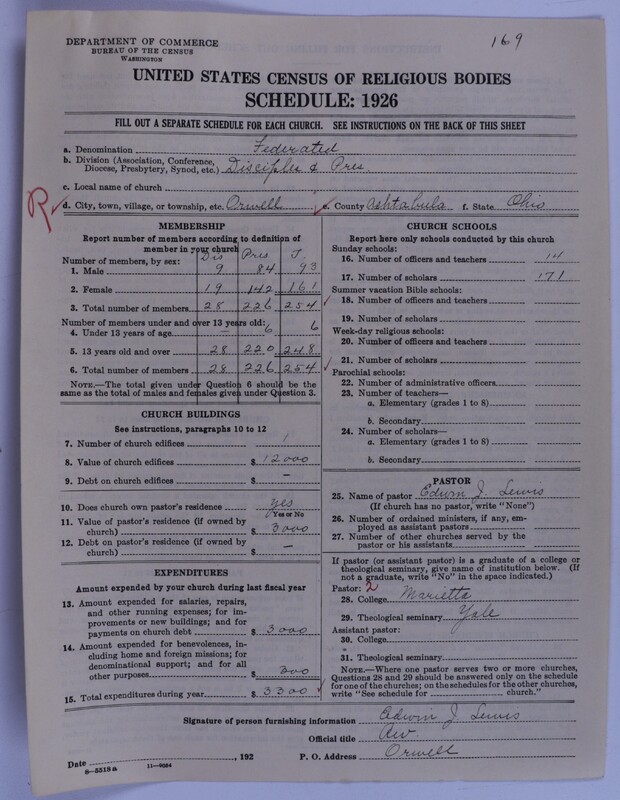 169
DEPARTMENT OF COMMERCE
BUREAU OF THE CENSUS
WASHINGTON
UNITED STATES CENSUS OF RELIGIOUS BODIES
SCHEDULE: 1926
FILL OUT A SEPARATE SCHEDULE FOR EACH CHURCH. SEE INSTRUCTIONS ON THE BACK OF THIS SHEET
a. Denomination Federated
b. Division (Association, Conference, Diocese, Presbytery, Synod, etc.) Disciples & Pres.
c. Local name of church
R
d. City, town, village, or township, etc. Orwell e. County Ashtabula f. State Ohio
MEMBERSHIP
Report number of members according to definition of
member in your church
Dis Pres T.
Number of members, by sex:
1. Male 9 84 93
2. Female 19 142 161
3. Total number of members 28 226 254
Number of members under and over 13 years old:
4. Under 13 years of age — 6 6
5. 13 years old and over 28 220 248
6. Total number of members 28 226 254
NOTE.—The total given under Question 6 should be
same as the total of males and females given under Question 3.
CHURCH BUILDINGS
See instructions, paragraphs 10 to 12
7. Number of church edifices 1
8. Value of church edifices $ 12000
9. Debt on church edifices $ —
10. Does church own pastor's residence yes
Yes or No
11. Value of pastor's residence (if owned by
church) $ 3000
12. Debt on pastor's residence (if owned by
church) $ —
EXPENDITURES
Amount expended by your church during last fiscal year
13. Amount expended for salaries, repairs,
and other running expenses; for im-
provements or new buildings; and for
payments on church debt $ 3000
14. Amount expended for benevolences, in-
cluding home and foreign missions; for
denominational support; and for all
other purposes $ 300
15. Total expenditures during year $ 3300
CHURCH SCHOOLS
Report here only schools conducted by this church
Sunday schools:
16. Number of officers and teachers 14
17. Number of scholars 171
Summer vacation Bible schools:
18. Number of officers and teachers
19. Number of scholars
Week-day religious schools:
20. Number of officers and teachers
21. Number of scholars
Parochial schools:
22. Number of administrative officers
23. Number of teachers—
a. Elementary (grades 1 to 8)
b. Secondary
24. Number of scholars—
a. Elementary (grades 1 to 8)
b. Secondary
PASTOR
25. Name of pastor Edwin J. Lewis
(If church has no pastor, write "None")
26. Number of ordained ministers, if any, em-
ployed as assistant pastors
27. Number of other churches served by the
pastor or his assistants
If pastor (or assistant pastor) is a graduate of a college or
theological seminary, give name of institution below. (If
not a graduate, write "No" in the space indicated.)
Pastor: 2
28. College Marietta
29. Theological seminary Yale
Assistant pastor:
30. College
31. Theological seminary
NOTE.—Where one pastor serves two or more churches,
Questions 28 and 29 should be answered only on the schedule
for one of the churches; on the schedules for the other churches,
write "See schedule for church."
Signature of person furnishing information Edwin J. Lewis
Official title
P. O. Address Orwell
Date , 192
8-5518a 11-9064